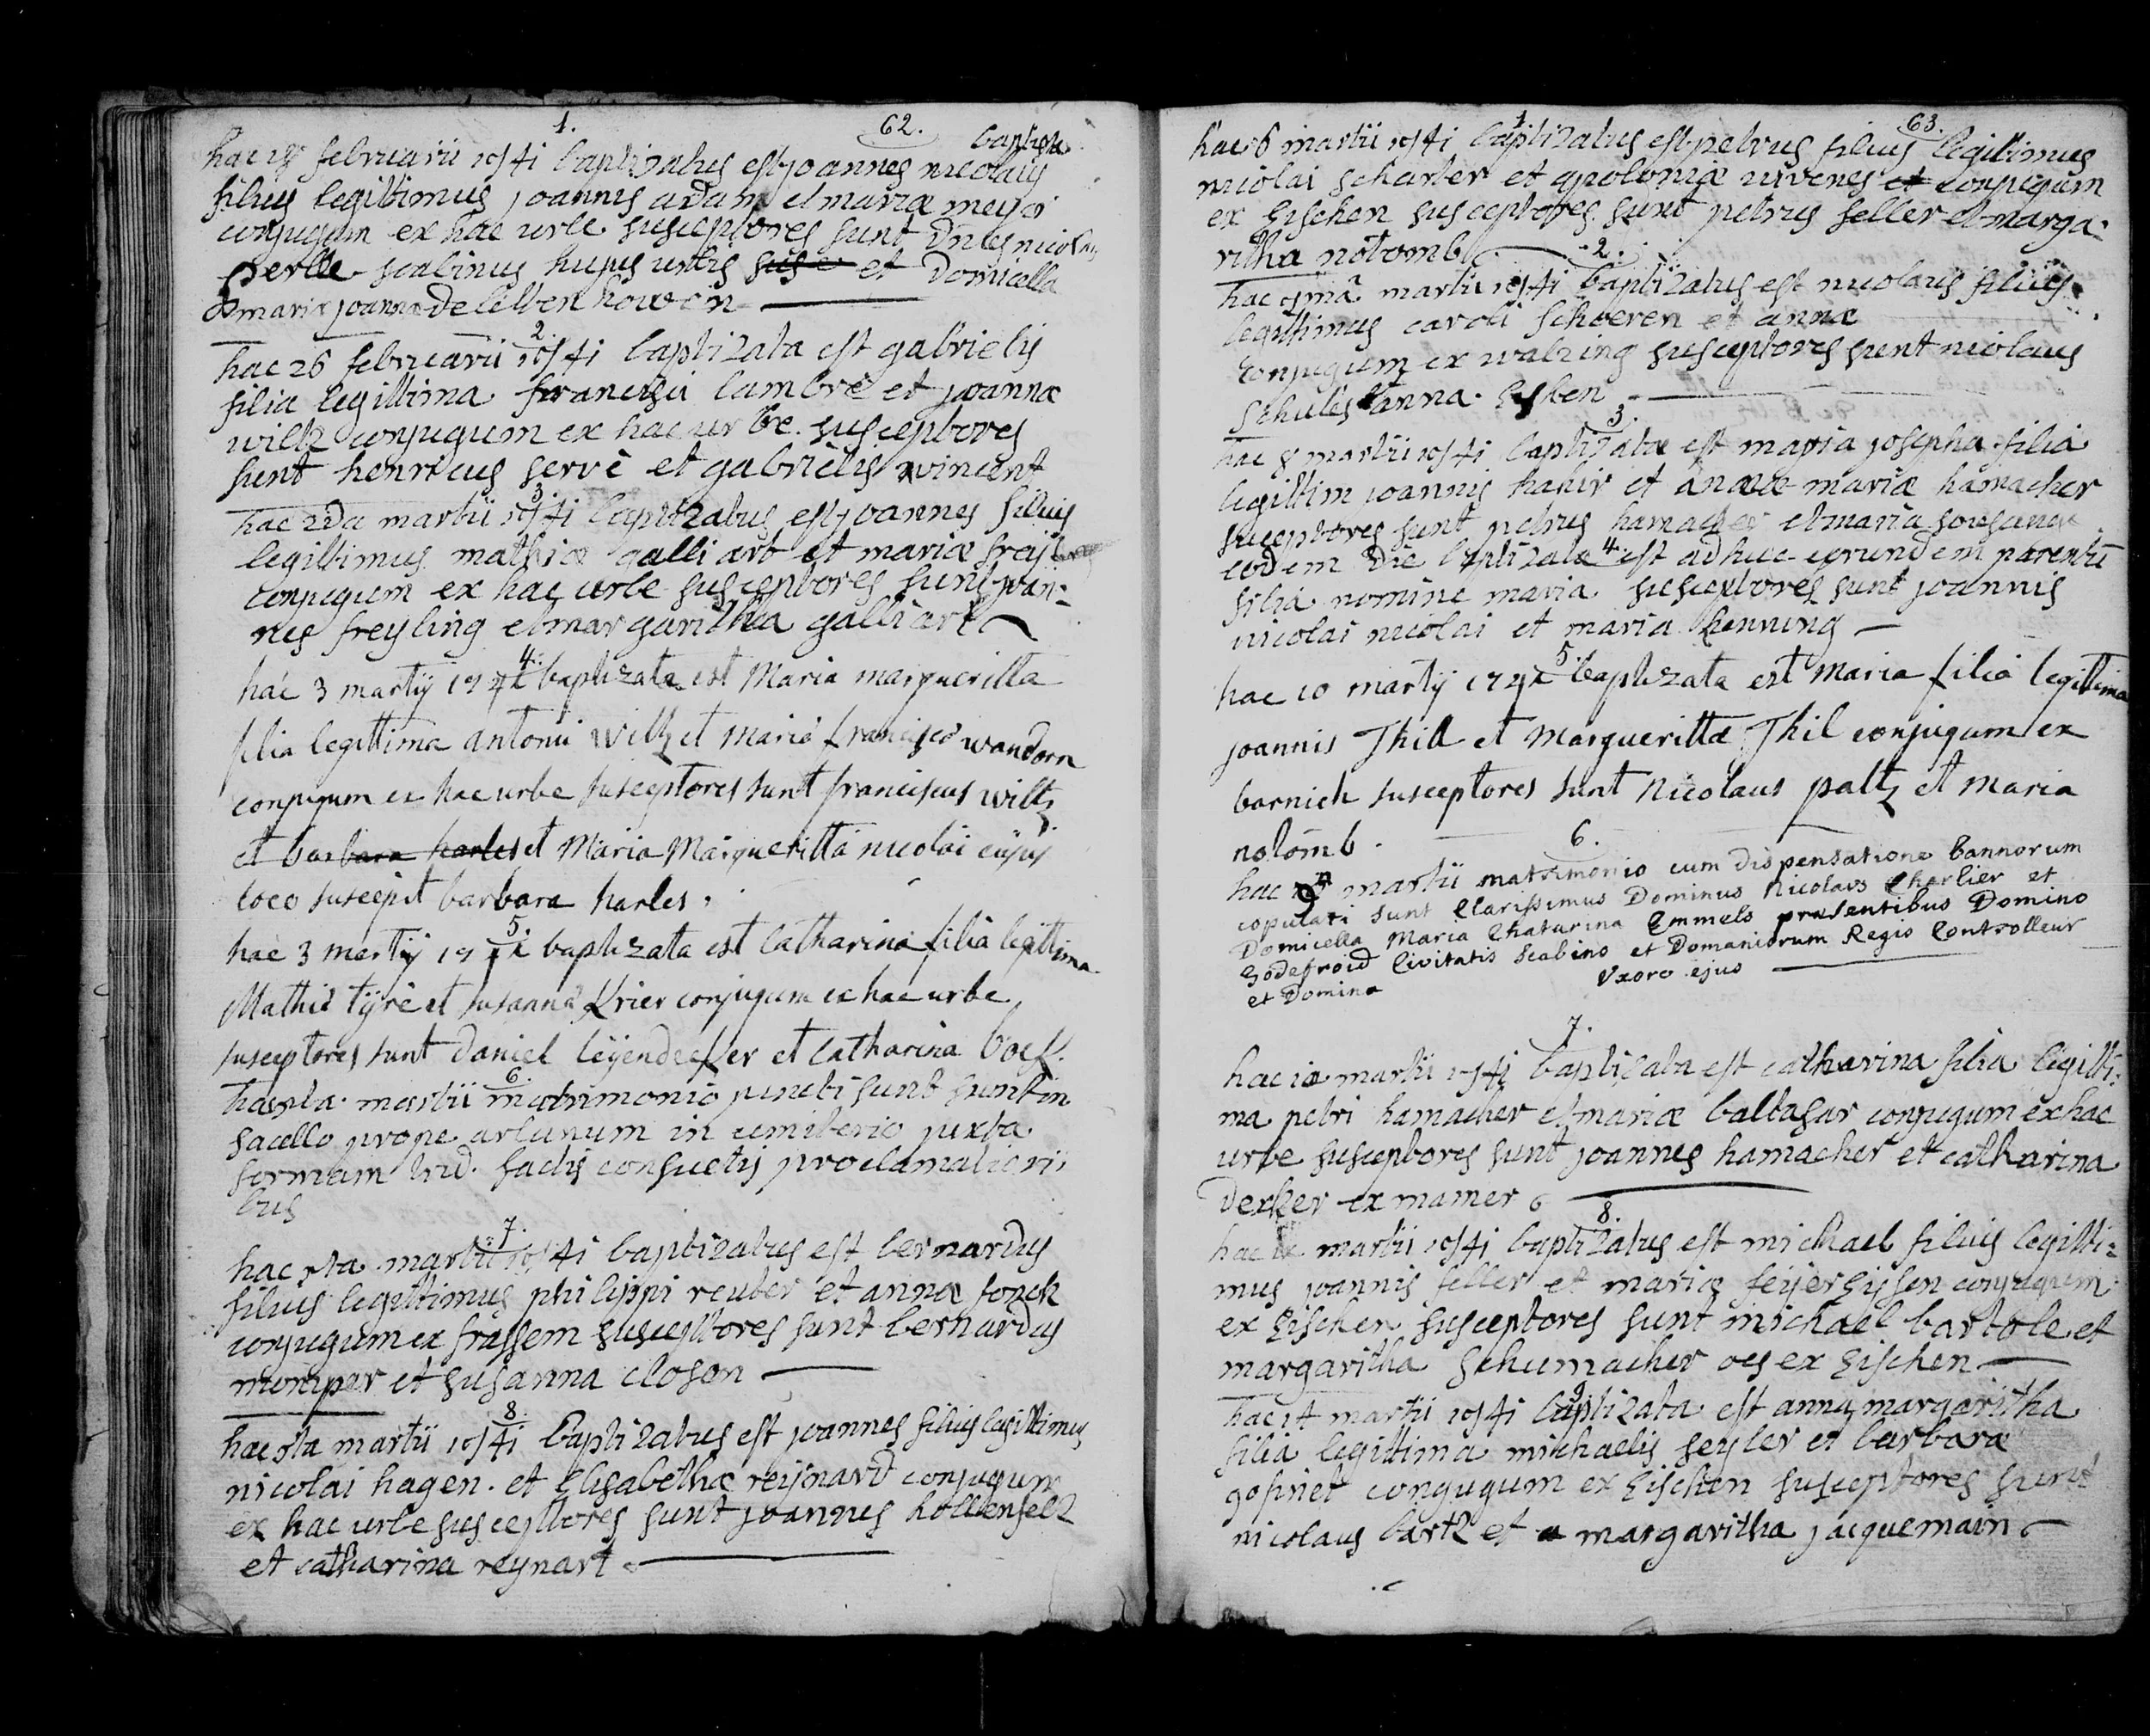 1. 62.
baptista
hac 18 februarii 1741 baptizatus est joannes nicolaus
filius legittimus joannis adam et mariæ meijs
conjugum ex hac urbe susceptores sunt dnus nicolaus
perlle scabinus hujus urbis et domicella
maria joanna de
2.
hac 26 februarii 1741 baptizata est gabrielis
filia legittima francisci lambrè et joannæ
wiltz conjugum ex hac urbe. susceptores
sunt henricus servè et gabrielis vincent
3.
hac 2da martii 1741 baptizatus est joannes filius
legittimus mathiæ galliart et mariæ
conjugum ex hac urbe susceptores sunt joan-
nes freyling et margaritha galliart
4.
hac 3 martÿ 1741 baptizata est Maria marguerilta
filia legittima antonii Wiltz et Maria francisca wandorn
conjugum ex hac urbe susceptores sunt franciscus wiltz
et barbara harles et Maria Margueritta nicolai cujus
loco suscepit barbara harles.
5.
hac 3 martÿ 1741 baptizata est Catharina filia legittima
Mathiæ tÿrè et susanna Krier conjugum ex hac urbe,
susceptores sunt daniel leÿendecker et Catharina
6.
martii matrimonio juncti sunt sunt in
sacello prope arlunum in cemiterio juxta
formam trid. factis consuetis proclamationi
bus
7.
hac 5ta martii 1741 baptizatus est bernardus
filius legittimus philippi reuter et annæ fonck
conjugum ex frassem susceptores sunt bernardus
momper et susanna closon
8.
hac 5ta martii 1741 baptizatus est joannes filius legittimus
nicolai hagen. et Elisabethæ reijnard conjugum
ex hac urbe susceptores sunt joannes hollenfeltz
et catharina reynart
1. 63.
hac 6 martii 1741 baptizatus est petrus filius legitimus
nicolai scharter et apoloniæ conjugum
ex Eischen susceptores sunt petrus feller et marga-
ritha notomb
2.
hac 7ma martii 1741 baptizatus est nicolaus filius
legittimus caroli schoeren et annæ
conjugum ex waltzing susceptores sunt nicolaus
anna
3.
hac 8 martii 1741 baptizata est maria josepha filia
legittim joannis et mariæ hamacher
susceptores sunt petrus hamacher et maria
4.
eodem die baptizata est adhuc eorundem parentū
filia nomine maria susceptores sunt joannis
nicolai nicolai et maria henning
5.
hac 10 martÿ 1741 baptizata est Maria filia legittima
joannis Thill et Marguerittæ Thil conjugum ex
barnich susceptores sunt Nicolaus paltz et Maria
nolomb.
6.
hac martii matrimonio cum dispensatione bannorum
copulati sunt Clarissimus Dominus Nicolaus Charlier et
Domicella Maria Chatarina Emmels præsentibus Domino
Godefroid Civitatis Scabino et Domaniorum Regio Controlleur
et Domina Uxore ejus
7.
hac martii 1741 baptizata est catharina filia legitti-
ma petri hamacher et mariæ baltasar conjugum ex hac
urbe susceptores sunt joannes hamacher et catharina
derker ex mamer
8.
hac martii 1741 baptizatus est michael filius legitti-
mus joannis feller et mariæ feijereijsen conjugum
ex Eischen susceptores sunt michael bartole et
margaritha schumacher oes ex Eischen
9.
hac 14 martii 1741 baptizata est anna margaritha
filia legittima michaelis seyler et barbaræ
gofinet conjugum ex Eischen susceptores sunt
nicolaus bartz et margaritha jacquemain